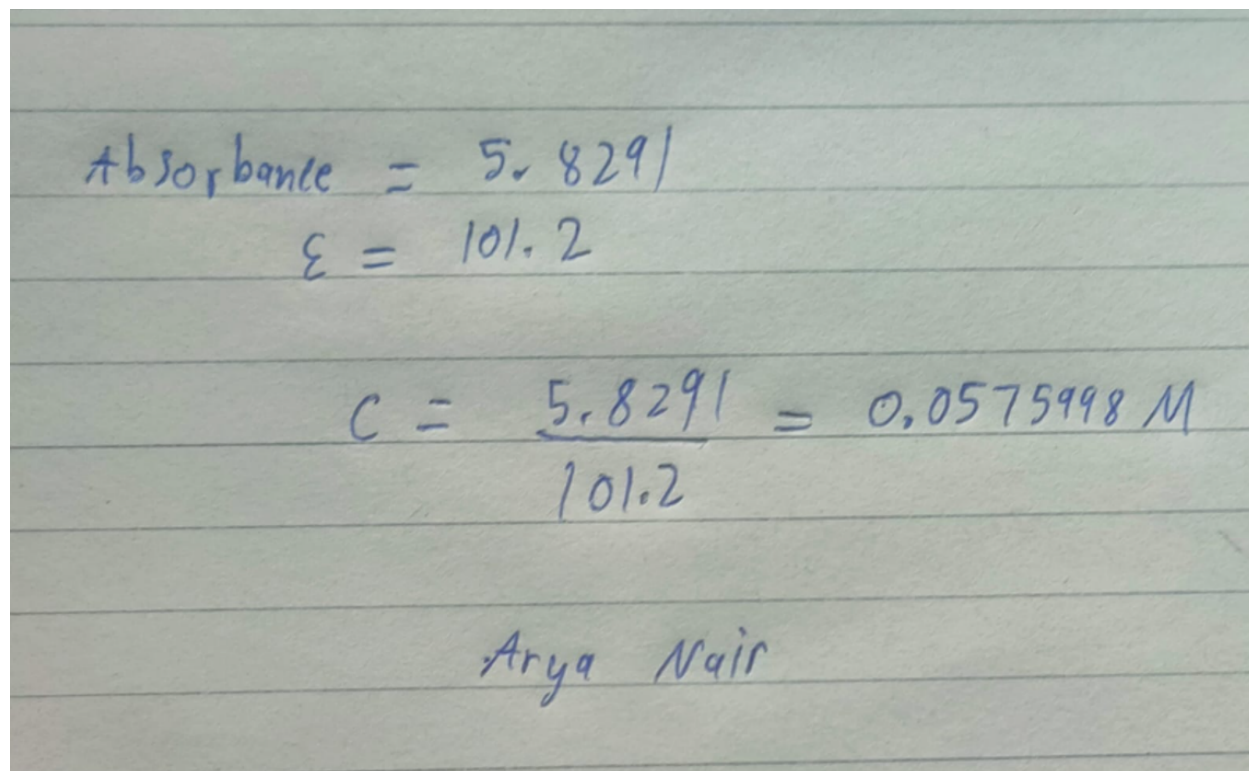 Absorbance = 5.8291
ε = 101.2
C = 5.8291 / 101.2 = 0.0575998 M
Arya Nair